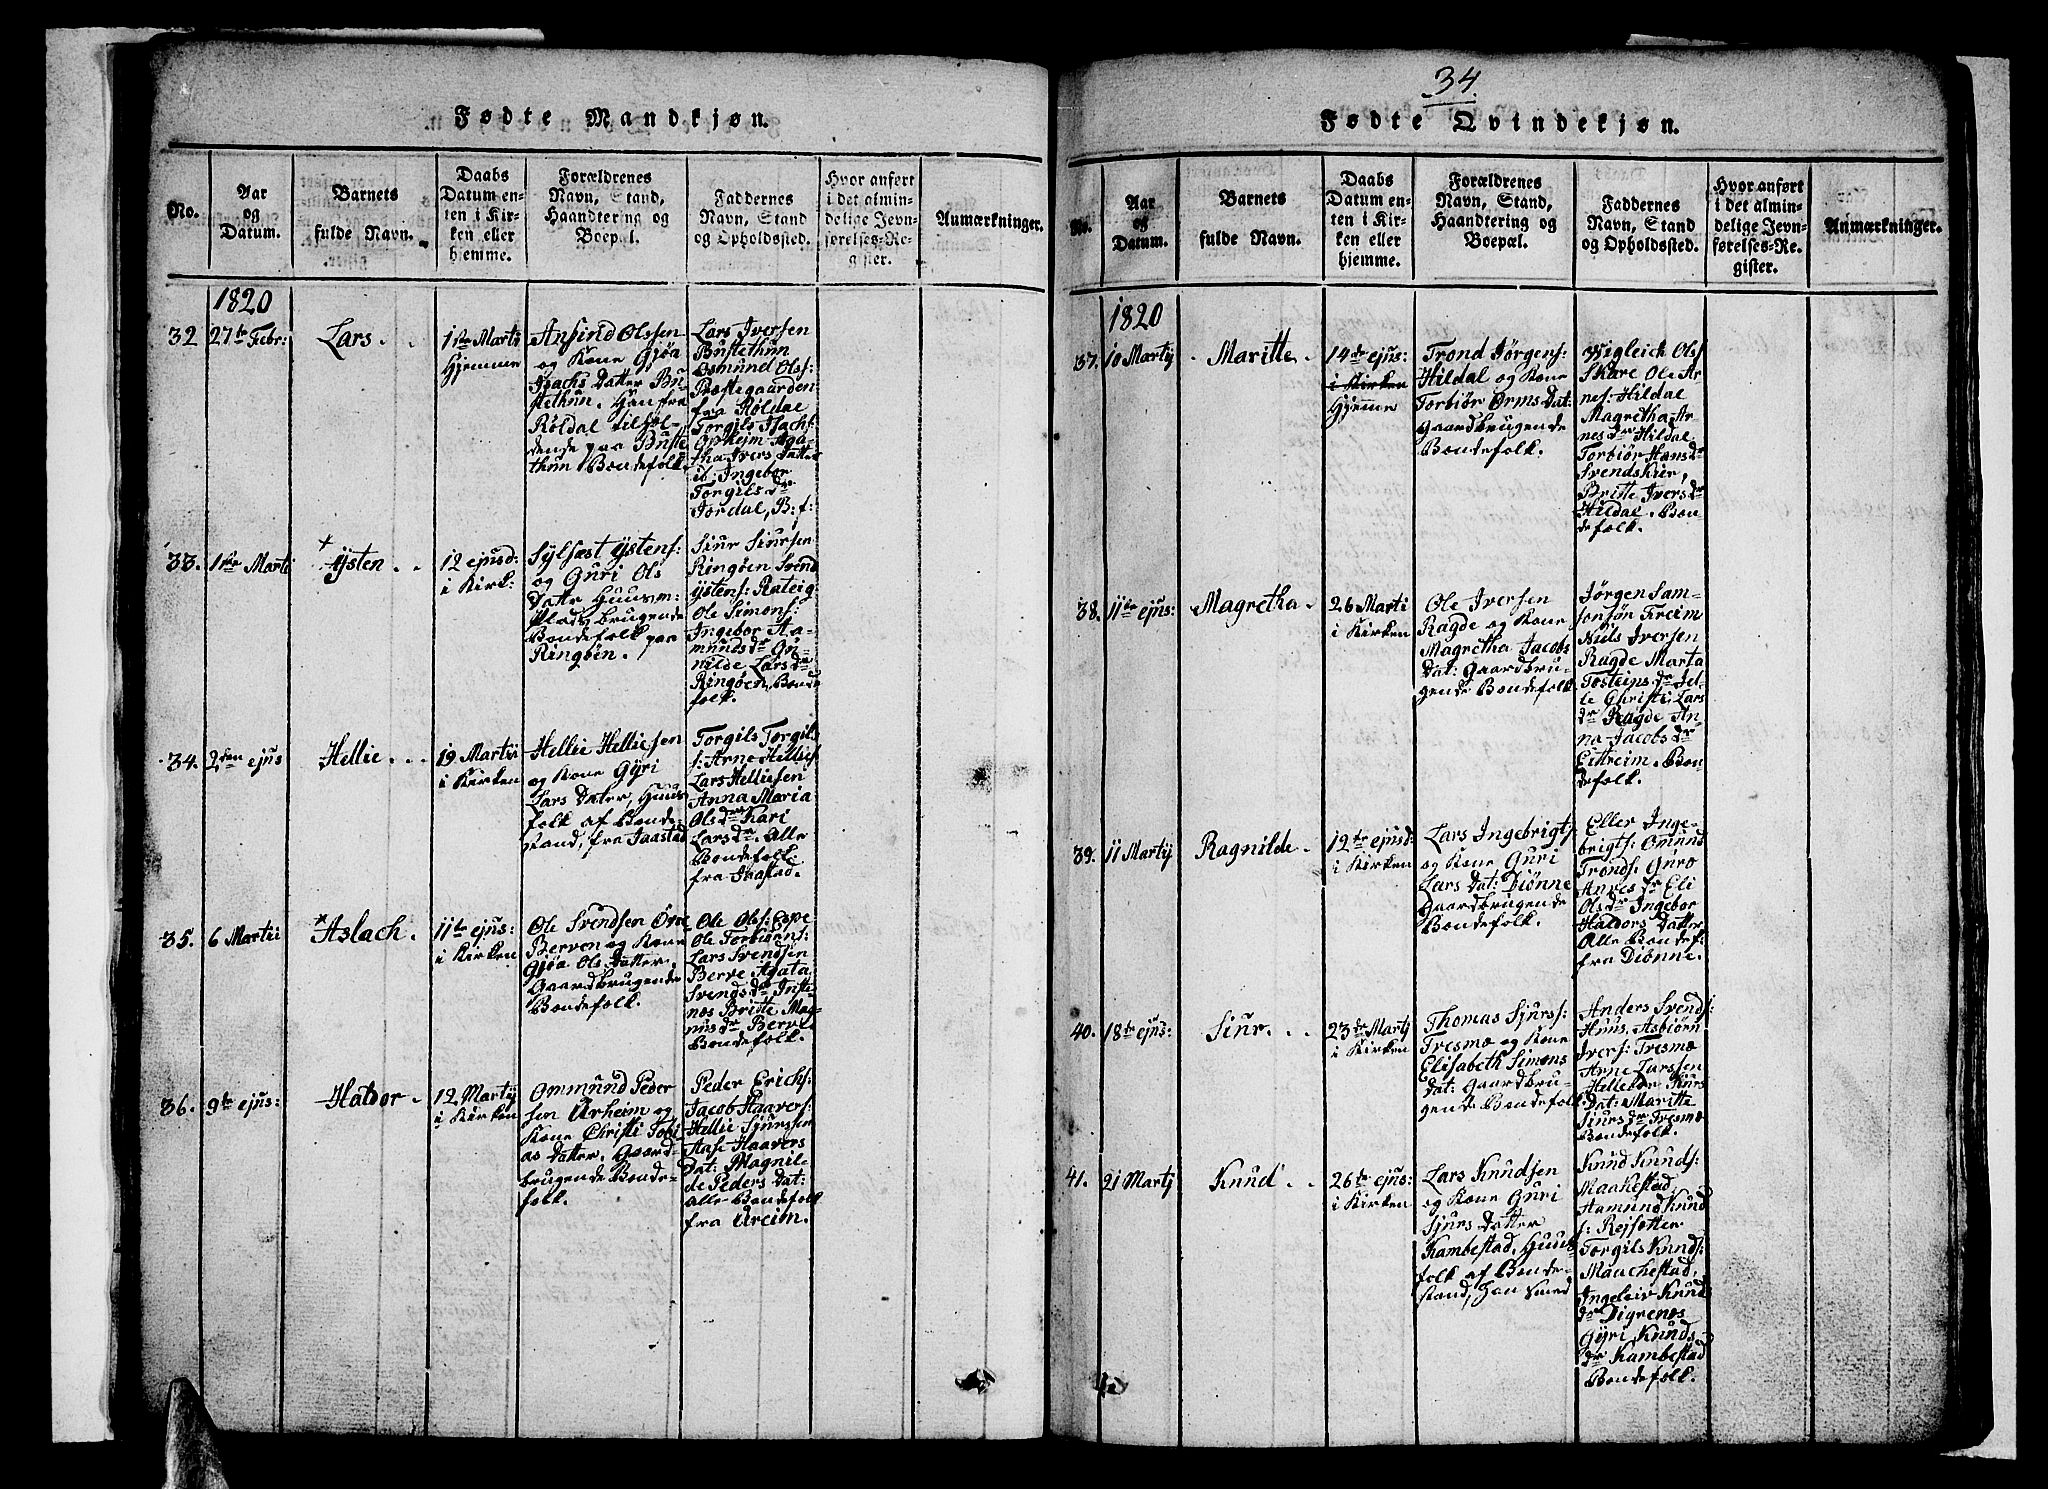 34.
Fødte Mandkjøn.
No.
Aar
og
Datum.
Barnets
fulde Navn.
Daabs
Datum en-
ten i Kir-
ken eller
hjemme.
Forældrenes
Navn, Stand,
Haandtering og
Boepæl.
Faddernes
Navn, Stand
og Opholdssted.
Hvor anført
i det almin-
delige Jevn-
førelses-Re-
gister.
Anmærkninger.
1820
32
27te Febr:
Lars
1ste Marti
Hjemme
Ansind Olssen
og Kone Gjøa
Isachs Datter Bu-
stethun. Han fra
Røldal tilhol-
dende paa Buste
thun Bondefolk
Lars Iversen
Bustethun
Osmund Ols:
Præstegaarden
fra Røldal
Torgils Isachs:
Opheim Aga-
tha Ivers Datter
ib Ingebor
Torgils dr
Jordal, B: f:
33.
1ste Marti
+
Ysten
12 ejusd:
i Kirk:
Sylfæst Ystens:
og Guri Ols
Datte Huusm:
Plads brugende
Bondefolk paa
Ringøen.
Siur Siursen
Ringøen Svend
Ystens: Rateig
Ole Simons:
Ingebor Aa-
munds dr Gu-
nilde Lars dr
Ringøen, Bonde
folk.
34.
2den ejus
Hellie
19 Martii
i Kirken
Hellie Helliesen
og Kone Gyri
Lars Datter, Huus
folk af Bonde-
stand, fra Jaastad
Torgils Torgils
s: Arne Hellies:
Lars Helliesen
Anna Maria
Ols dr Kari
Lars dr. Alle
Bondefolk
fra Jaastad.
35.
6 Martii
*Aslach
11te ejus:
i Kirken
Ole Svendsen Øvre
Berven og Kone
Gjøa Ols Datter.
Gaardbrugende
Bondefolk.
Ole Ols: Espe
Ole Torbiørns:
Lars Svendsen
Berve Agata
Svends dr Inste
næs Britte Mag-
nus dr Berve
Bondefolk.
36.
9te ejus:
Haldor
12 Martij
i Kirken
Ommund Peder
sen Urheim og
Kone Christi Tobi
as Datter. Gaard-
brugende Bonde-
folk.
Peder Erichs:
Jacob Haavers:
Hellie Sjurssen
Anse Haavers
Dat: Magnil-
de Peders Dat:
alle Bondefolk
fra Ureim.
Fødte Qvindekjøn.
No.
Aar
og
Datum.
Barnets
fulde Navn.
Daabs
Datum en-
ten i Kir-
ken eller
hjemme.
Forældrenes
Navn, Stand,
Haandtering og
Boepæl.
Faddernes
Navn, Stand
og Opholdssted.
Hvor anført
i det almin-
delige Jevn-
førelses-Re-
gister.
Anmærkninger.
1820
37.
10 Martij
Maritte
14de ejus:
i Kirken
Hjemme
Trond Jørgens:
Hildal og Kone
Torbiør Orms Dat:
gaardbrugende
Bondefolk.
Wigleich Ols
Skare Ole Ar
nes: Hildal
Magretha Ar-
nes dr Hildal
Torbiør Hans dr
Svendskier,
Britte Ivers dr
Hildal. Bon-
defolk.
38.
11te ejus:
Magretha
26 Marti
i Kirken
Ole Iversen
Ragde og Kone
Magretha Jacobs
Dat: gaardbru-
gende Bondefolk
Jørgen Sam-
sonsøn Freim
Niels Iversen
Ragde Marta
Tosteins dr Jel-
le Christi, Lars
dr Ragde An-
na Jacobs dr
Eitreim. Bon-
defolk.
39.
11 Martij
Ragnilde
12te ejusd
i Kirken
Lars Ingebrigts:
og Kone Guri
Lars Dat: Diønne
gaardbrugende
Bondefolk.
Eller Inge-
brigts: Omund
Tronds. Guro
Arnes dr Eli
Ols dr Ingebor
Haldors Datter
Alle Bondef:
fra Diønne.
40.
18te ejus:
Siur
23de Martij
i Kirken
Thomas Sjurss:
Tresmæ og Kone
Elisabeth Simons
Dat: Gaardbru-
gende Bondefolk
Anders Svends:
Huus, Asbiørn
Ivers: Tresmæ
Arne Larssen
Hellebor Kurs
Dat: Maritte
Siurs dr Tresmæ
Bondefolk.
41.
21 Martij
Knud
26de ejus:
i Kirken
Lars Knudsen
og Kone Guri
Sjurs Datter
Kambestad, Huus-
folk af Bonde-
stand, Han Smed
Knud Knuds:
Maakestad,
Hamund Knud
s: Rejsæter
Torgils Knuds:
Maachestad,
Ingeleiv Knud
dr Digrenæs
Gyri Knuds
dr Kambestad
Bondefolk.